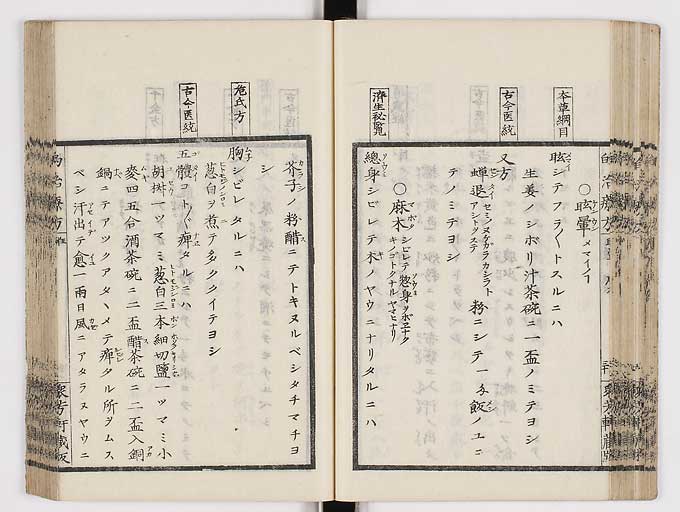 本草綱目
古今医統
済生秘覧
○眩暈メマイ
眩シテフラ〱トスルニハ
生姜ノシホリ汁茶碗ニ一盃ノミテヨシ
又方
蝉退 粉ニシテ一匁飯ノユニ
テノミテヨシ
○麻木シビレテ惣身ヲボヱナク
キノゴトクナルヤマヒナリ
總身シビレテ木ノヤウニナリタルニハ
危氏方
古今医統
芥子ノ粉醋ニテトキヌルベシタチマチヨ
シ
胸シビレタルニハ
葱白ヲ煮テ多ククイテヨシ
五體コト〲ク痺タルニハ
胡椒一ツマミ葱白三本細切鹽一ツマミ小
麥四五合酒茶碗ニ二盃醋茶碗ニ二盃入銅
鍋ニテアツクアタヽメテ痺タル所ヲムス
ベシ汗出テ愈一両日風ニアタラヌヤウニ